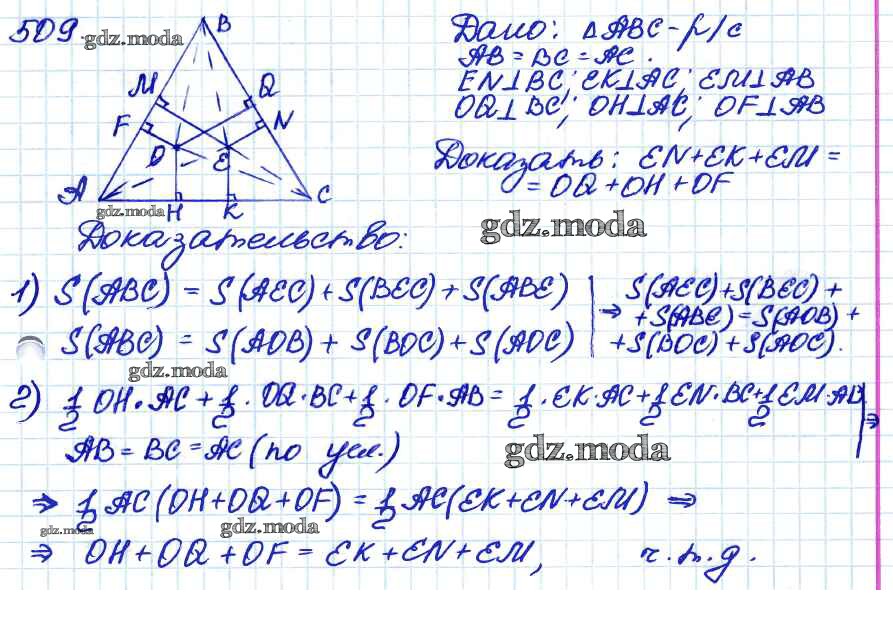 509 gdz.moda
B
M
Q
F
N
O
E
A
C
gdz.moda
H
K
Дано: △ABC - р/с
AB = BC = AC.
EN⊥BC; EK⊥AC; EM⊥AB
OQ⊥BC; OH⊥AC; OF⊥AB
Доказать: EN+EK+EM =
= OQ+OH+OF
gdz.moda
Доказательство:
1) S(ABC) = S(AEC)+S(BEC)+S(ABE) | ⇒ S(AEC)+S(BEC)+
+S(ABE)=S(AOB)+
S(ABC) = S(AOB)+S(BOC)+S(AOC) +S(BOC)+S(AOC).
gdz.moda
2) 1/2 OH·AC + 1/2 · OQ·BC + 1/2 · OF·AB = 1/2 · EK·AC + 1/2 EN·BC + 1/2 EM·AB | ⇒
AB = BC = AC (по усл.)
gdz.moda
⇒ 1/2 AC (OH+OQ+OF) = 1/2 AC(EK+EN+EM) ⇒
gdz.moda gdz.moda
⇒ OH+OQ+OF = EK+EN+EM, ч.т.д.